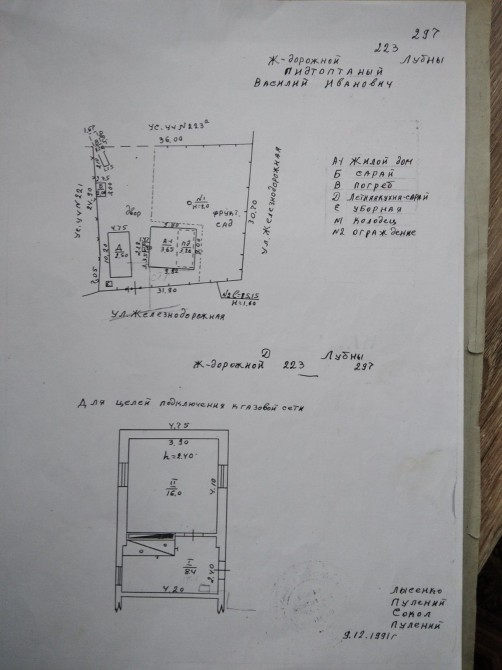 297
223
Ж-дорожной Лубны
Пидтоптаный
Василий Иванович
Ус. уч N 223²
36,00
Ус. уч N 221
24,20
Двор
N1
H=20
фрукт.
сад
Ул. Железнодорожная
30,70
4,75
Д
2,50
10,20
7,05
31,80
H=1,60
Ул. Железнодорожная
А-1 Жилой дом
Б Сарай
В Погреб
Д Летняякухни-сарай
Е Уборная
N1 Колодец
N2 Ограждение
Д
Лубны
Ж-дорожной 223 297
Для целей подключения кгазовой сети
4,75
3,90
h=2,40
16,0
4,10
8,4
2,40
4,20
Лысенко
Пулений
Сокол
Пулений
9.12.1991г